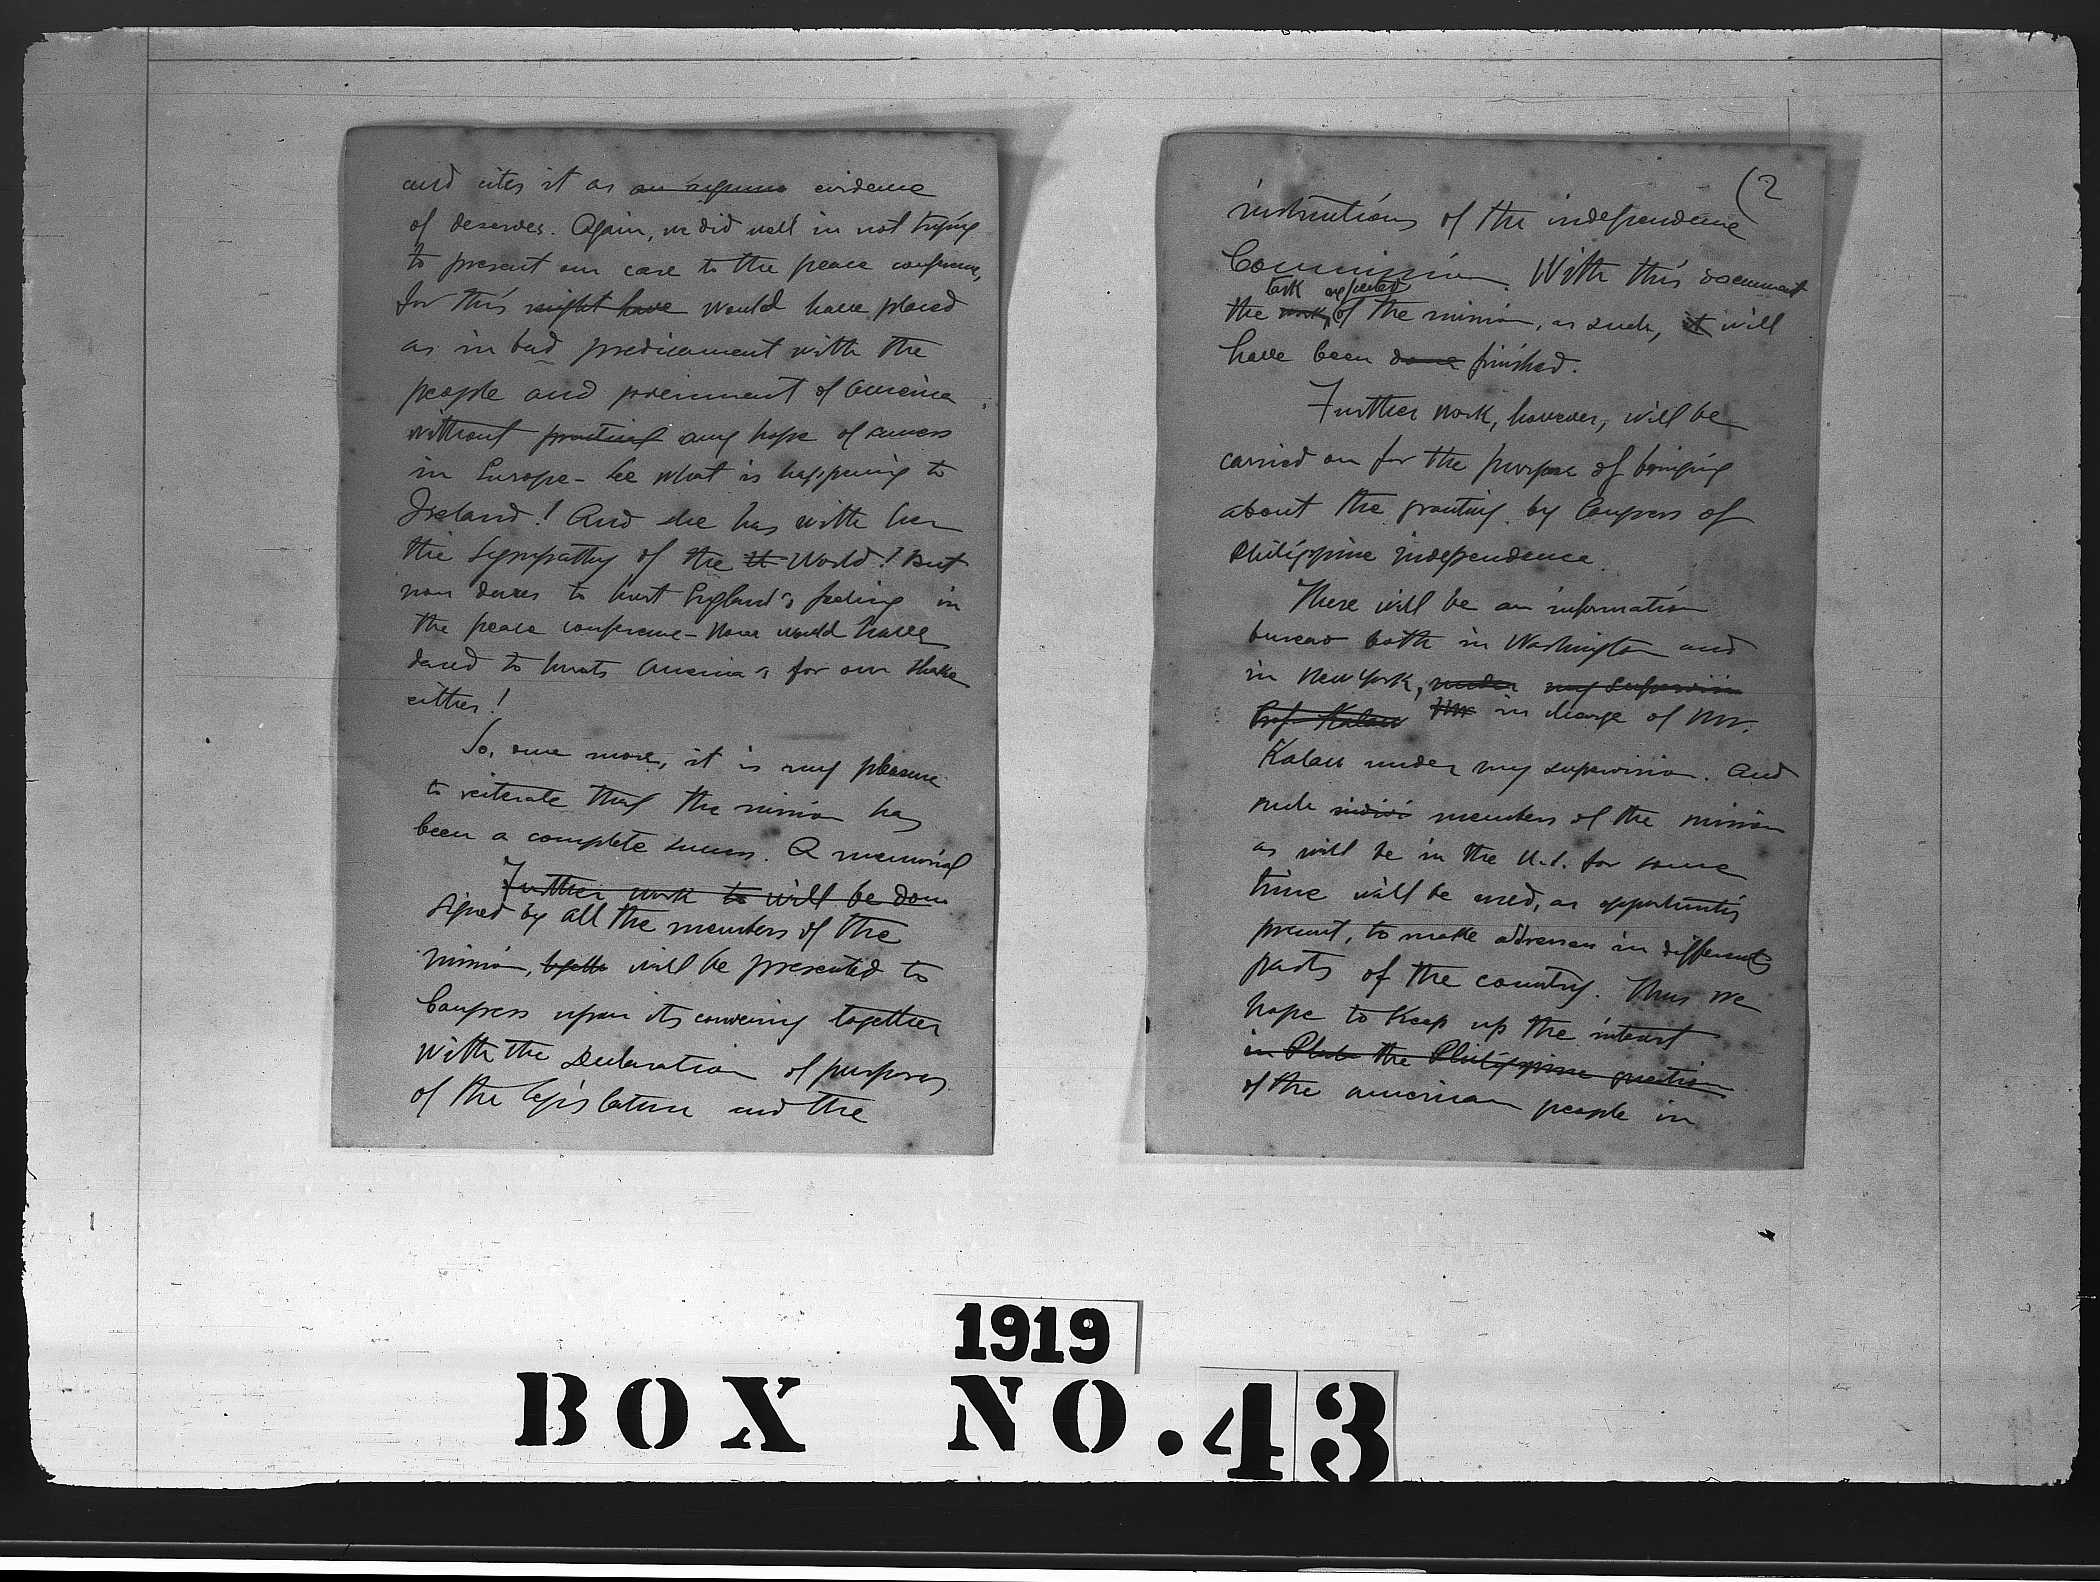 and cites it as an argument evidence
of deserves. Again, we did well in not trying
to present our case to the peace conference,
for this might have would have placed
as in bad predicament with the
people and government of America
without practical any hope of success
in Europe - See what is happening to
Ireland! And she has with her
the Sympathy of the World! But
non dares to hurt England's feeling in
the peace conference - None would have
dared to hurts America's for our shake
either!
So, once more, it is my pleasure
to reiterate that the mission has
been a complete success. A memorial
Further work to will be done
signed by all the members of the
mission, will be presented to
Congress upon its convening together
With the Declaration of purposes
of the legislature and the
(2
instructions of the independence
Commission. With this document
task expected
the work of the mission, as such, it will
have been done finished.
Further work, however, will be
carried on for the purpose of bringing
about the granting by Congress of
Philippine independence.
There will be an information
bureao both in Washington and
in New York, under my supervision
Prof. Kalaw in charge of Mr.
Kalaw under my supervision. And
such members of the mission
as will be in the U.S. for some
time will be used, as opportunities
present, to make addresses in differents
parts of the country. Thus we
hope to Keep up the interest
in the Philippine question
of the american people in
1919
BOX NO. 43